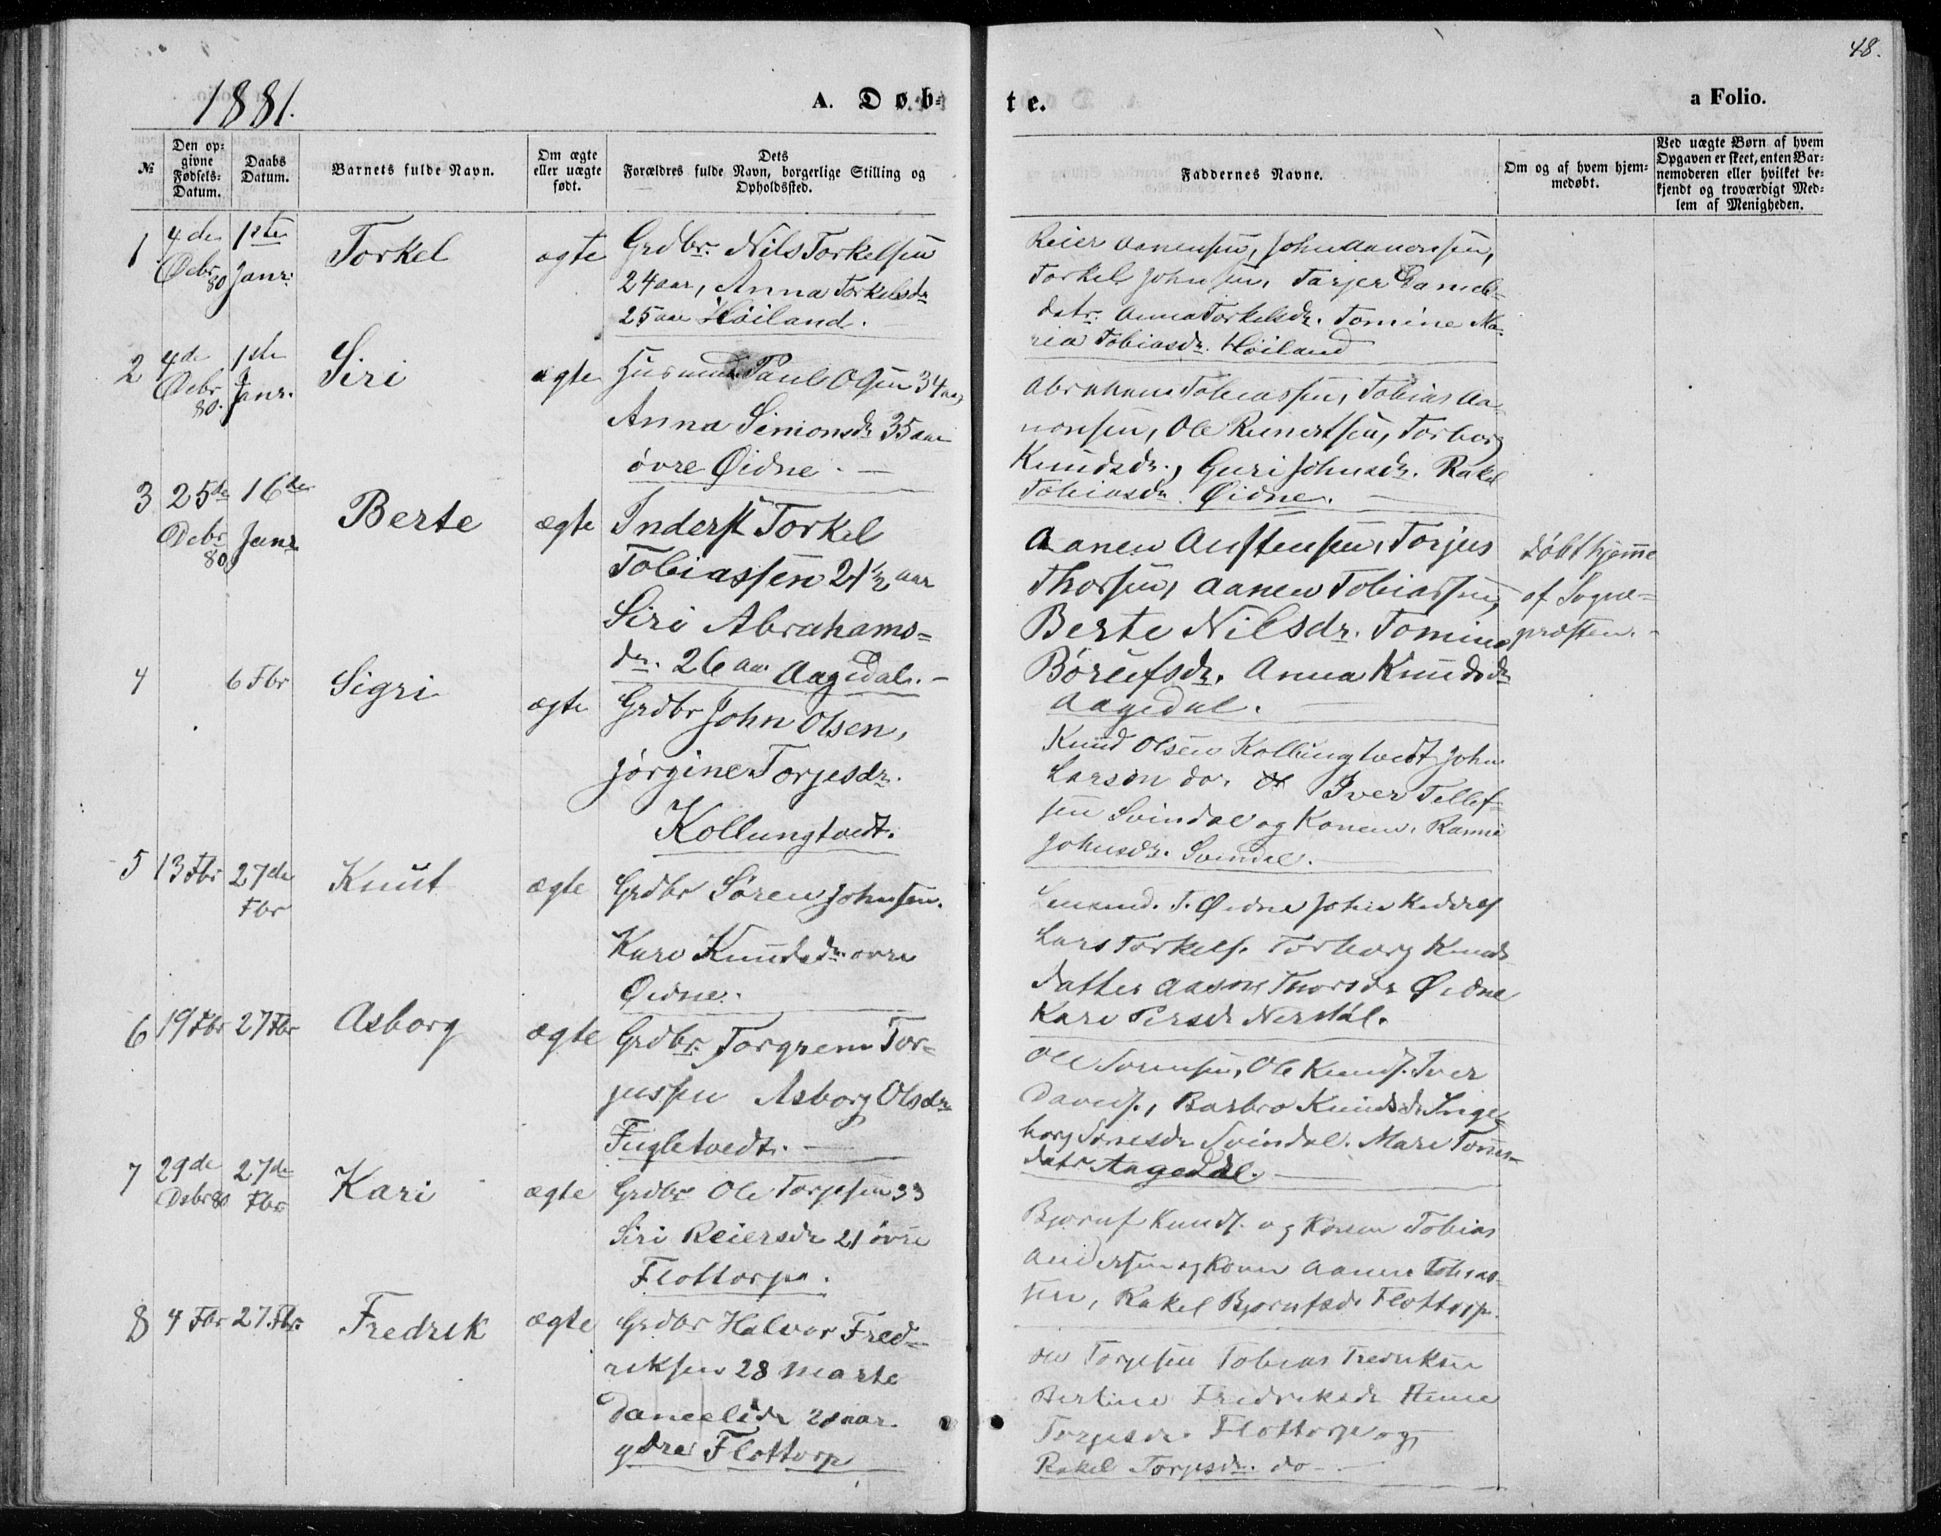 48.
1881.
A. Døb-
te.
a Folio.
№
Den op-
givne
Fødsels-
Datum.
Daabs
Datum.
Barnets fulde Navn.
Om ægte
eller uægte
født.
Dets
Forældres fulde Navn, borgerlige Stilling og
Opholdssted.
Faddernes Navne.
Om og af hvem hjem-
medøbt.
Ved uægte Børn af hvem
Opgaven er skeet, enten Bar-
nemoderen eller hvilket be-
kjendt og troværdigt Med-
lem af Menigheden.
1
4de
Debr
80
1ste
Janr.
Torkel
ægte
Grdbr. Nils Torkelsen
24 aar, Anna Torkelsdr
25 aar Høiland.
Reier Aanensen, John Aanensen,
Torkel Johnsen, Tarjer Daniels-
datr. Anna Torkelsdr. Tomine Ma-
ria Tobiasdr. Høiland
2
4de
Debr
80.
1de
Janr.
Siri
ægte
Husmand Paul Olsen 34 aar,
Anna Simonsdr 35 aar
øvre Øidne. —
Abraham Tobiassen, Tobias Aa-
nensen, Ole Reinertsen, Torborg
Knudsdr., Guri Johnsdr. Rakel
Tobiasdr Øidne.
3
25de
Debr
80
16de
Janr
Berte
ægte
Inderst Torkel
Tobiassen 21½ aar
Siri Abrahams-
dr. 26 aar Aagedal. —
Aanen Austensen, Torjus
Thorsen, Aanen Tobiassen,
Berte Nilsdr. Tomine
Børilfsdr. Anna Knudsdr
Aagedal.
Døbt hjemme
af Sogne-
præsten. -
4
6 Fbr
Sigri
ægte
Grdbr John Olsen,
Jørgine Torjesdr.
Kollungtvedt.
Knud Olsen Kollungtvedt John
Larsen do. Iver Tellef-
sen Svindal og Konen, Rannei
Johnsdr. Svindal.
5
13 Fbr
27de
Fbr
Knut
ægte
Grdbr Søren Johnsen.
Kari Knudsdr øvre
Øidne.
T. Øidne John
Lars Torkels. Torborg Knuds
datter Aasne Thorsdr Øidne
Kari Persdr Nerstøl.
6
19 Fbr
27 Fbr
Asborg
ægte
Grdbr. Torgrem Tor-
jussen Asborg Olsdr
Fugletvedt. —
Ole Sørensen, Ole Knuds. Iver
Davids., Barbro Knudsdr Inge-
borg Svindal. Mari Toms-
datr Aagedal. —
7
29de
Debr 80
27de
Fbr
Kari
ægte
Grdbr Ole Torjesen 33
Siri Reiersdr 21 øvre
Flottorp.
Bjørnf Knuds. og Konen Tobias
Andersen og Konen Aanen Tobias-
sen, Rakel Bjørnfsdr Flottorp.
8
4 Fbr
27. Fbr
Fredrik
ægte
Grdbr Halvor Fred-
riksen 28 Marte
Danielsdr 21 aar.
ydre Flottorp
Ole Torjesen Tobias Fredriksen
Bertine Fredriksdr Anne
Torjesdr. Flottorp og
Rakel Torjesdr. do —.